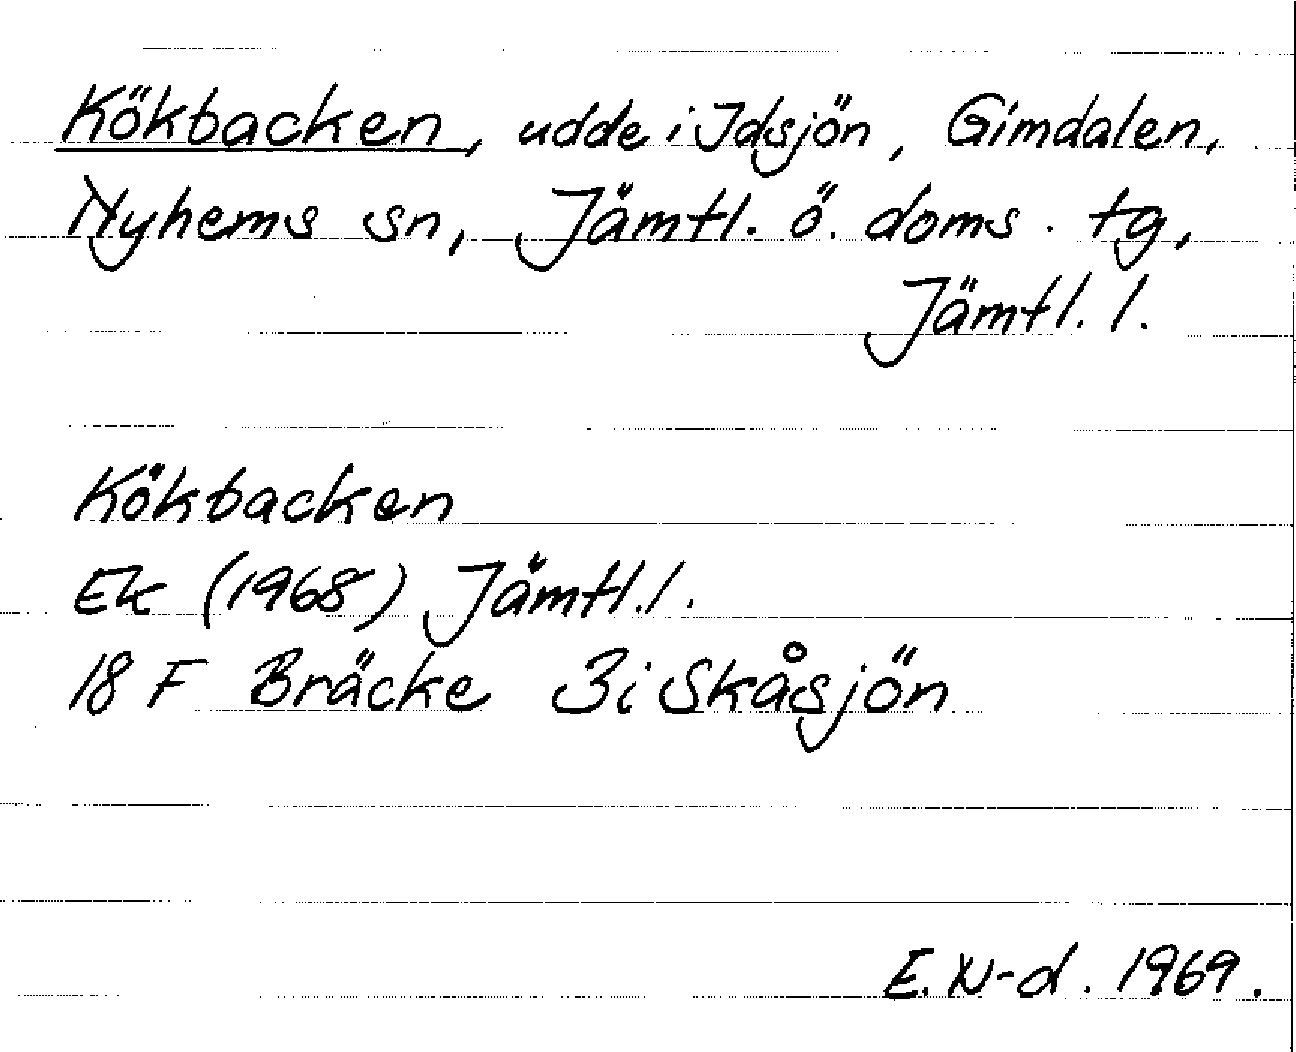 Kökbacken, udde i Idsjön, Gimdalen,
Nyhems sn, Jämtl. ö. doms. tg,
Jämtl. l.
Kökbacken
Ek (1968) Jämtl. l.
18 F Bräcke 3 i Skåsjön
E. N-d. 1969.